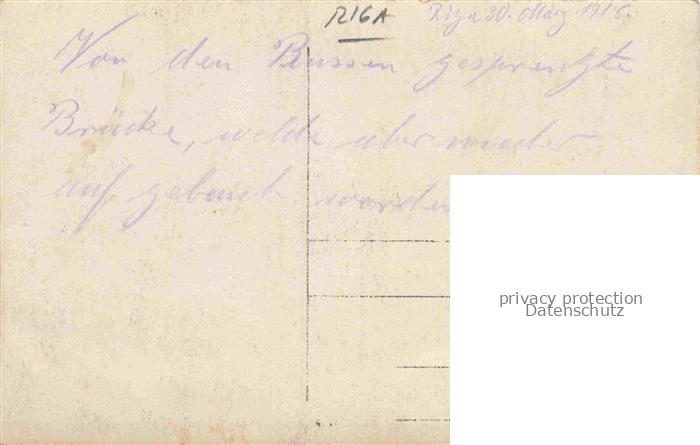 RIGA
Riga 30. März 1918.
Von den Russen gesprengte
Brücke, welche aber wieder
auf gebaut worden
privacy protection
Datenschutz